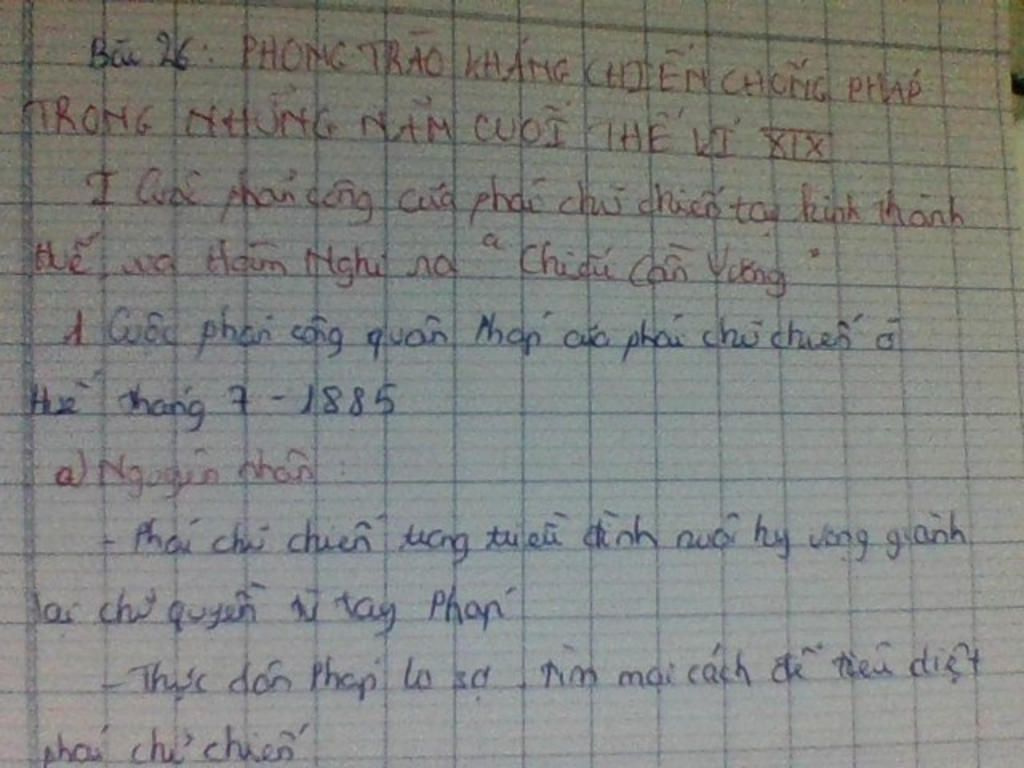 Bài 26: PHONG TRÀO KHÁNG CHIẾN CHỐNG PHÁP
TRONG NHỮNG NĂM CUỐI THẾ KỈ XIX
I Cuộc phản công của phái chủ chiến tại kinh thành
Huế, vua Hàm Nghi ra "Chiếu Cần Vương"
1 Cuộc phản công quân Pháp của phái chủ chiến ở
Huế tháng 7 - 1885
a) Nguyên nhân:
- Phái chủ chiến trong triều đình nuôi hy vọng giành
lại chủ quyền từ tay Pháp
- Thực dân Pháp lo sợ, tìm mọi cách để tiêu diệt
phái chủ chiến